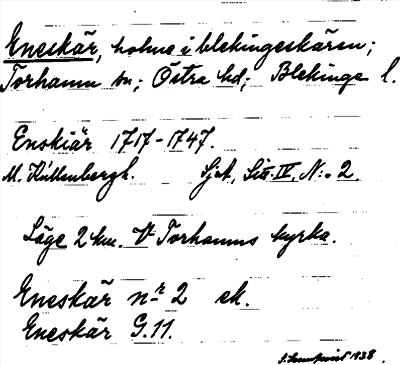 Eneskär, holme i blekingeskären;
Torhamn sn; Östra hd; Blekinge l.
Enskiär 1717-1747.
M. Kullenbergh. Sjrt, Litt. IV. N:o 2.
Läge 2 km. V Torhamns kyrka.
Eneskär nr 2 ek.
Eneskär G.11.
1938.